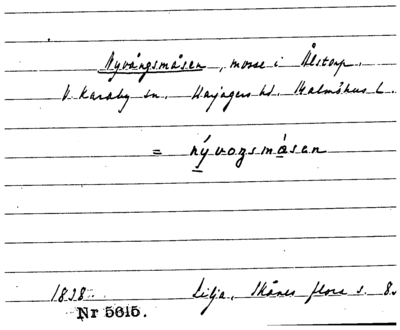 Nyvångsmåsen, mosse i Ålstorp.
V. Karaby sn. Harjagers hd. Malmöhus l.
= nývozsmåsen
1838. Lilja, Skånes flora s. 8.
Nr 5615.